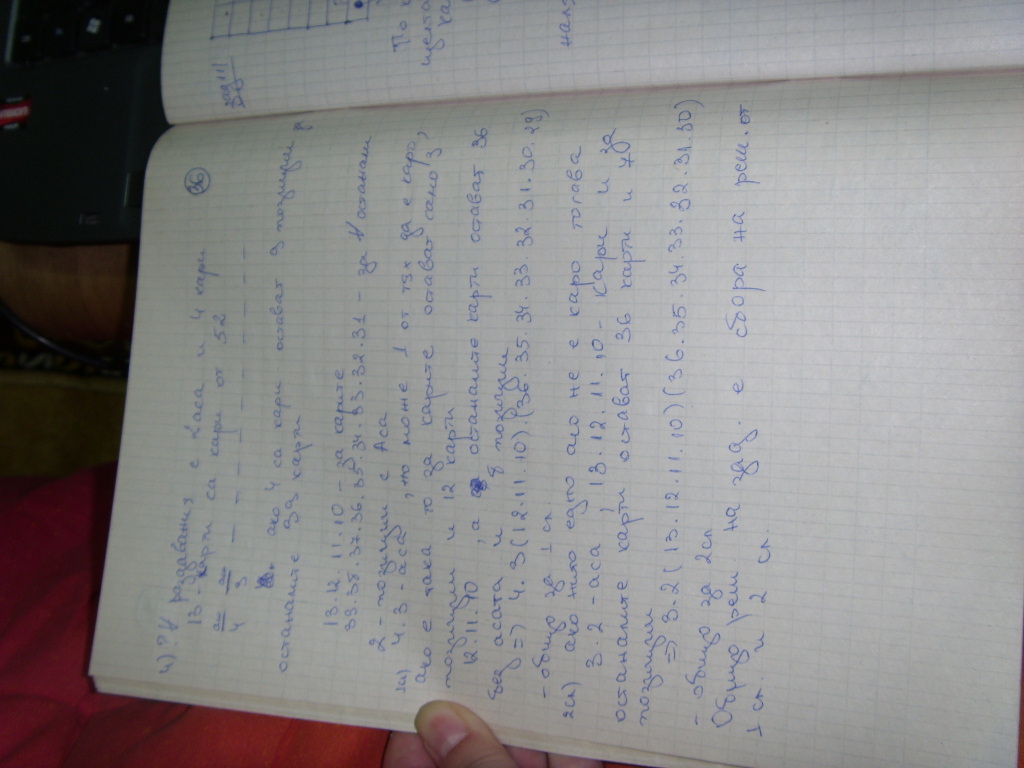 36
4) ? # раздавания с 2 аса и 4 кари
13 - карти са кари от 52
4 3
ако 4 са кари остават 9 позиции в
останалите 39 карти
13.12.11.10 - за карите
39.38.37.36.35.34.33.32.31 - за # останали
2 - позиции с Аса
1сл) 4.3 - аса , то може 1 от тях да е каро,
ако е така то за карите остават само 3
позиции и 12 карти
12.11.10 , а останалите карти остават 36
без асата и 8 позиции
=> 4.3(12.11.10).(36.35.34.33.32.31.30.29)
- общо за 1 сл.
2сл) ако нито едно асо не е каро тогава
3.2 - аса , 13.12.11.10 - кари и за
останалите карти остават 36 карти и 7
позиции
=> 3.2(13.12.11.10)(36.35.34.33.32.31.30)
- общо за 2сл
Общо реш на зад. е сбора на реш. от
1 сл. и 2 сл.
зад III
По
щепа
ка
нал